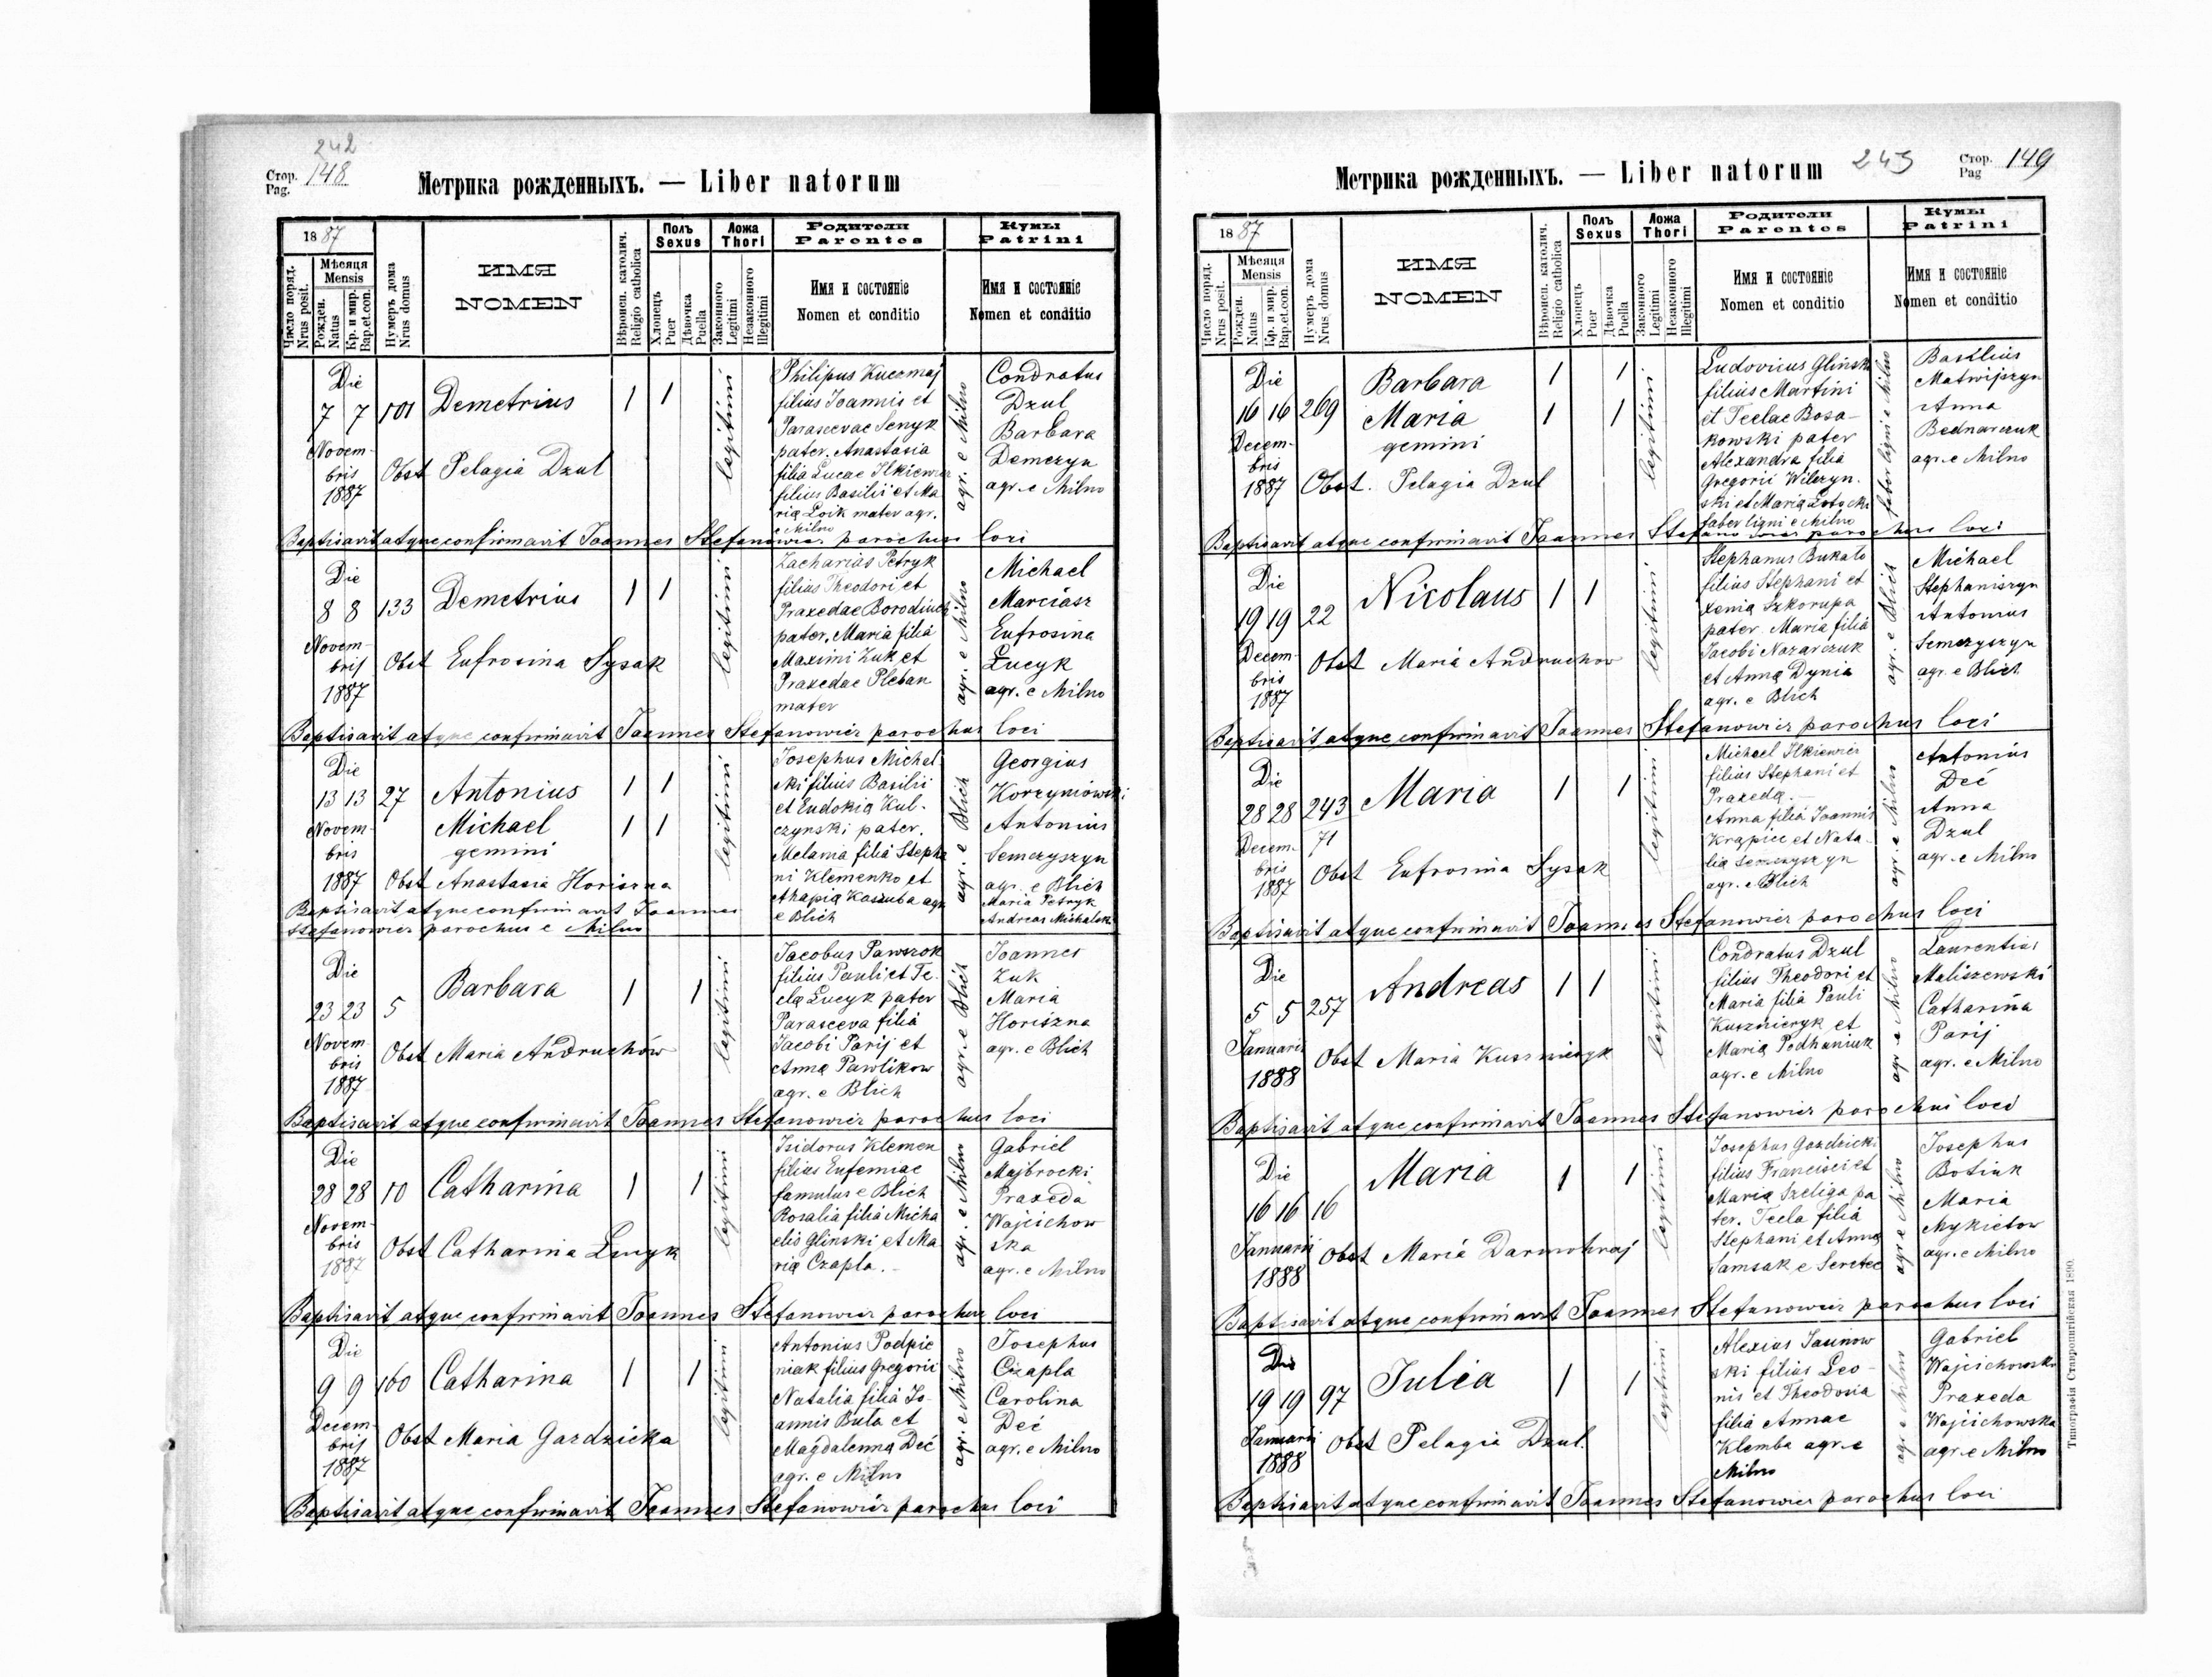 242
Стор.
Pag. 148
Метрика рожденныхъ. — Liber natorum
1887
Число поряд.
Nrus posit.
Мѣсяця
Mensis
Рожден.
Natus
Кр. и мир.
Bap.et.con.
Нумеръ дома
Nrus domus
ИМЯ
NOMEN
Вѣроиси. католич.
Religio catholica
Полъ
Sexus
Хлопецъ
Puer
Дѣвочка
Puella
Ложа
Thori
Законного
Legitimi
Незаконного
Illegitimi
Родители
Parentes
Имя и состояніе
Nomen et conditio
Кумы
Patrini
Имя и состояніе
Nomen et conditio
Die
7 7 101 Demetrius 1 1
Novem-
bris
1887
Obst Pelagia Dzul
legitimi
Philipus Kuczmaj
filius Joannis et
Parascevae Senyk
pater. Anastasia
filia Lucae Ilkiewicz
filius Basilii et Ma
ria Loik mater agr.
e Milno
agr. e Milno
Condratus
Dzul
Barbara
Demczyn
agr. e Milno
Baptisavit atque confirmavit Joannes Stefanowicz parochus loci
Die
8 8 133 Demetrius 1 1
Novem-
bris
1887
Obst Eufrosina Sysak
legitimi
Zacharias Petryk
filius Theodori et
Praxedae Borodiuch
pater, Maria filia
Maximi Zuk et
Praxedae Pleban
mater
agr. e Milno
Michael
Marciasz
Eufrosina
Łucyk
agr. e Milno
Baptisavit atque confirmavit Joannes Stefanowicz parochus loci
Die
13 13 27 Antonius 1 1
Novem-
bris
1887
Michael 1 1
gemini
Obst Anastasia Horiszna
legitimi
Josephus Michal
ski filius Basilii
et Eudokia Kul-
czynski pater.
Melania filia Stepha
ni Klemenko et
Ahapia Kaszuba agr
e Blich
agr. e Blich
Georgius
Korzyniowski
Antonius
Semczyszyn
agr. e Blich
Maria Petryk
Andreas Michalski
Baptisavit atque confirmavit Joannes
Stefanowicz parochus e Milno
Die
23 23 5 Barbara 1 1
Novem-
bris
1887
Obst Maria Andruchów
legitimi
Jacobus Pawszok
filius Pauli et Te
cla Łucyk pater
Parasceva filia
Jacobi Parij et
Anna Pawlikow
agr. e Blich
agr. e Blich
Joannes
Zuk
Maria
Horiszna
agr. e Blich
Baptisavit atque confirmavit Joannes Stefanowicz parochus loci
Die
28 28 10 Catharina 1 1
Novem-
bris
1887
Obst Catharina Łucyk
legitimi
Isidorus Klemen
filius Eufemiae
famulus e Blich
Rosalia filia Micha
elis Glinski et Ma
ria Czapla.
agr. e Milno
Gabriel
Majbrocki
Praxeda
Wajcichow
ska
agr. e Milno
Baptisavit atque confirmavit Joannes Stefanowicz parochus loci
Die
9 9 160 Catharina 1 1
Decem-
bris
1887
Obst Maria Gazdzicka
legitimi
Antonius Podpic
niak filius Gregorii
Natalia filia Jo-
annis Buta et
Magdalenna Deć
agr. e Milno
agr. e Milno
Josephus
Czapla
Carolina
Deć
agr. e Milno
Baptisavit atque confirmavit Joannes Stefanowicz parochus loci
Метрика рожденныхъ. — Liber natorum
243
Стор.
Pag 149
1887
Число поряд.
Nrus posit.
Мѣсяця
Mensis
Рожден.
Natus
Кр. и мир.
Bap.et.con.
Нумеръ дома
Nrus domus
ИМЯ
NOMEN
Вѣроиси. католич.
Religio catholica
Полъ
Sexus
Хлопецъ
Puer
Дѣвочка
Puella
Ложа
Thori
Законного
Legitimi
Незаконного
Illegitimi
Родители
Parentes
Имя и состояніе
Nomen et conditio
Кумы
Patrini
Имя и состояніе
Nomen et conditio
Die
16 16 269 Barbara 1 1
Decem-
bris
1887
Maria 1 1
gemini
Obst. Pelagia Dzul
legitimi
Ludovicus Glinski
filius Martini
et Teclae Bosa-
kowski pater
Alexandra filia
Gregorii Wilczyn-
ski et Maria Łotocki
faber ligni e Milno
faber ligni e Milno
Basilius
Matwijszyn
Anna
Bednarczuk
agr. e Milno
Baptisavit atque confirmavit Joannes Stefanowicz parochus loci
Die
19 19 22 Nicolaus 1 1
Decem-
bris
1887
Obst Maria Andruchow
legitimi
Stephanus Bukalo
filius Stephani et
Xenia Szkorupa
pater Maria filia
Jacobi Nazarczuk
et Anna Dynia
agr. e Blich
agr. e Blich
Michael
Stephaniszyn
Antonius
Semczyszyn
agr. e Blich
Baptisavit atque confirmavit Joannes Stefanowicz parochus loci
Die
28 28 243 Maria 1 1
71
Decem-
bris
1887
Obst Eufrosina Sysak
legitimi
Michael Ilkiewicz
filius Stephani et
Praxeda.
Anna filia Joannis
Krapicz et Nata-
lia Semczyszyn
agr. e Blich
agr. e Milno
Antonius
Deć
Anna
Dzul
agr. e Milno
Baptisavit atque confirmavit Joannes Stefanowicz parochus loci
Die
5 5 257 Andreas 1 1
Januarii
1888
Obst Maria Kusznieryk
legitimi
Condratus Dzul
filius Theodori et
Maria filia Pauli
Kusznieryk et
Maria Podhaniuk
agr. e Milno
agr. e Milno
Laurentius
Maliszewski
Catharina
Parij
agr. e Milno
Baptisavit atque confirmavit Joannes Stefanowicz parochus loci
Die
16 16 16 Maria 1 1
Januarii
1888
Obst Maria Darmohraj
legitimi
Josephus Gazdzicki
filius Francisci et
Maria Szeliga pa
ter. Tecla filia
Stephani et Anna
Samsak e Seretec
agr e Milno
Josephus
Botiuk
Maria
Mykietow
agr. e Milno
Baptisavit atque confirmavit Joannes Stefanowicz parochus loci
Die
19 19 97 Julia 1 1
Januarii
1888
Obst Pelagia Dzul.
legitimi
Alexius Jasinow
ski filius Leo-
nis et Theodosia
filia Annae
Klemba agr. e
Milno
agr e Milno
Gabriel
Wajcichowski
Praxeda
Wajcichowska
agr. e Milno
Baptisavit atque confirmavit Joannes Stefanowicz parochus loci
Типографія Ставропигійская 1890.